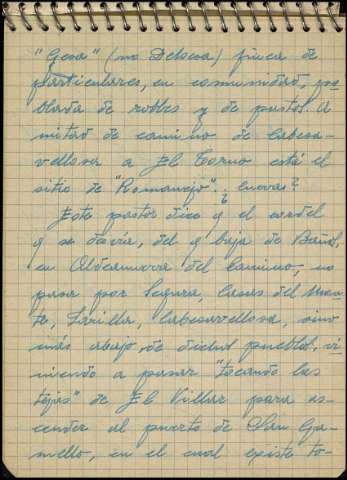 "Gesa" (no Dehesa) finca de
particulares, en comunidad, po-
blada de robles y de pastos. A
mitad de camino de Cabeza-
vellosa a El Torno está el
sitio de "Romanejo". ¿Cuevas?
Este pastor dice q el cordel
q se desvía, del q baja de Baños,
en Aldeanueva del Camino, no
pasar por Segura, Casas del Mon-
te, Jarilla, Cabezavellosa, sino
más abajo, de dichos pueblos, vi-
niendo a pasar "tocando las
tejas" de El Villar para as-
cender al puerto de
en el cual existe to-